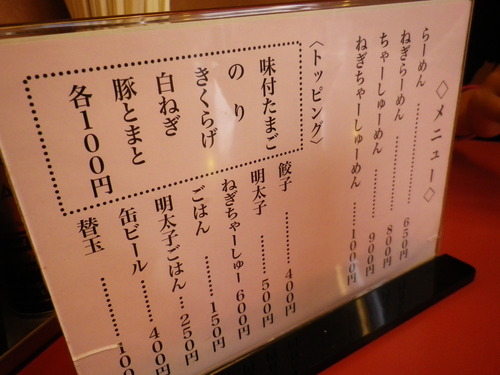 ◇メニュー◇
らーめん………………650円
ねぎらーめん…………800円
ちゃーしゅーめん……900円
ねぎちゃーしゅーめん………1000円
〈トッピング〉
味付たまご
のり
きくらげ
白ねぎ
豚とまと
各100円
餃子………400円
明太子………500円
ねぎちゃーしゅー600円
ごはん………150円
明太子ごはん…250円
缶ビール………400円
替玉………100